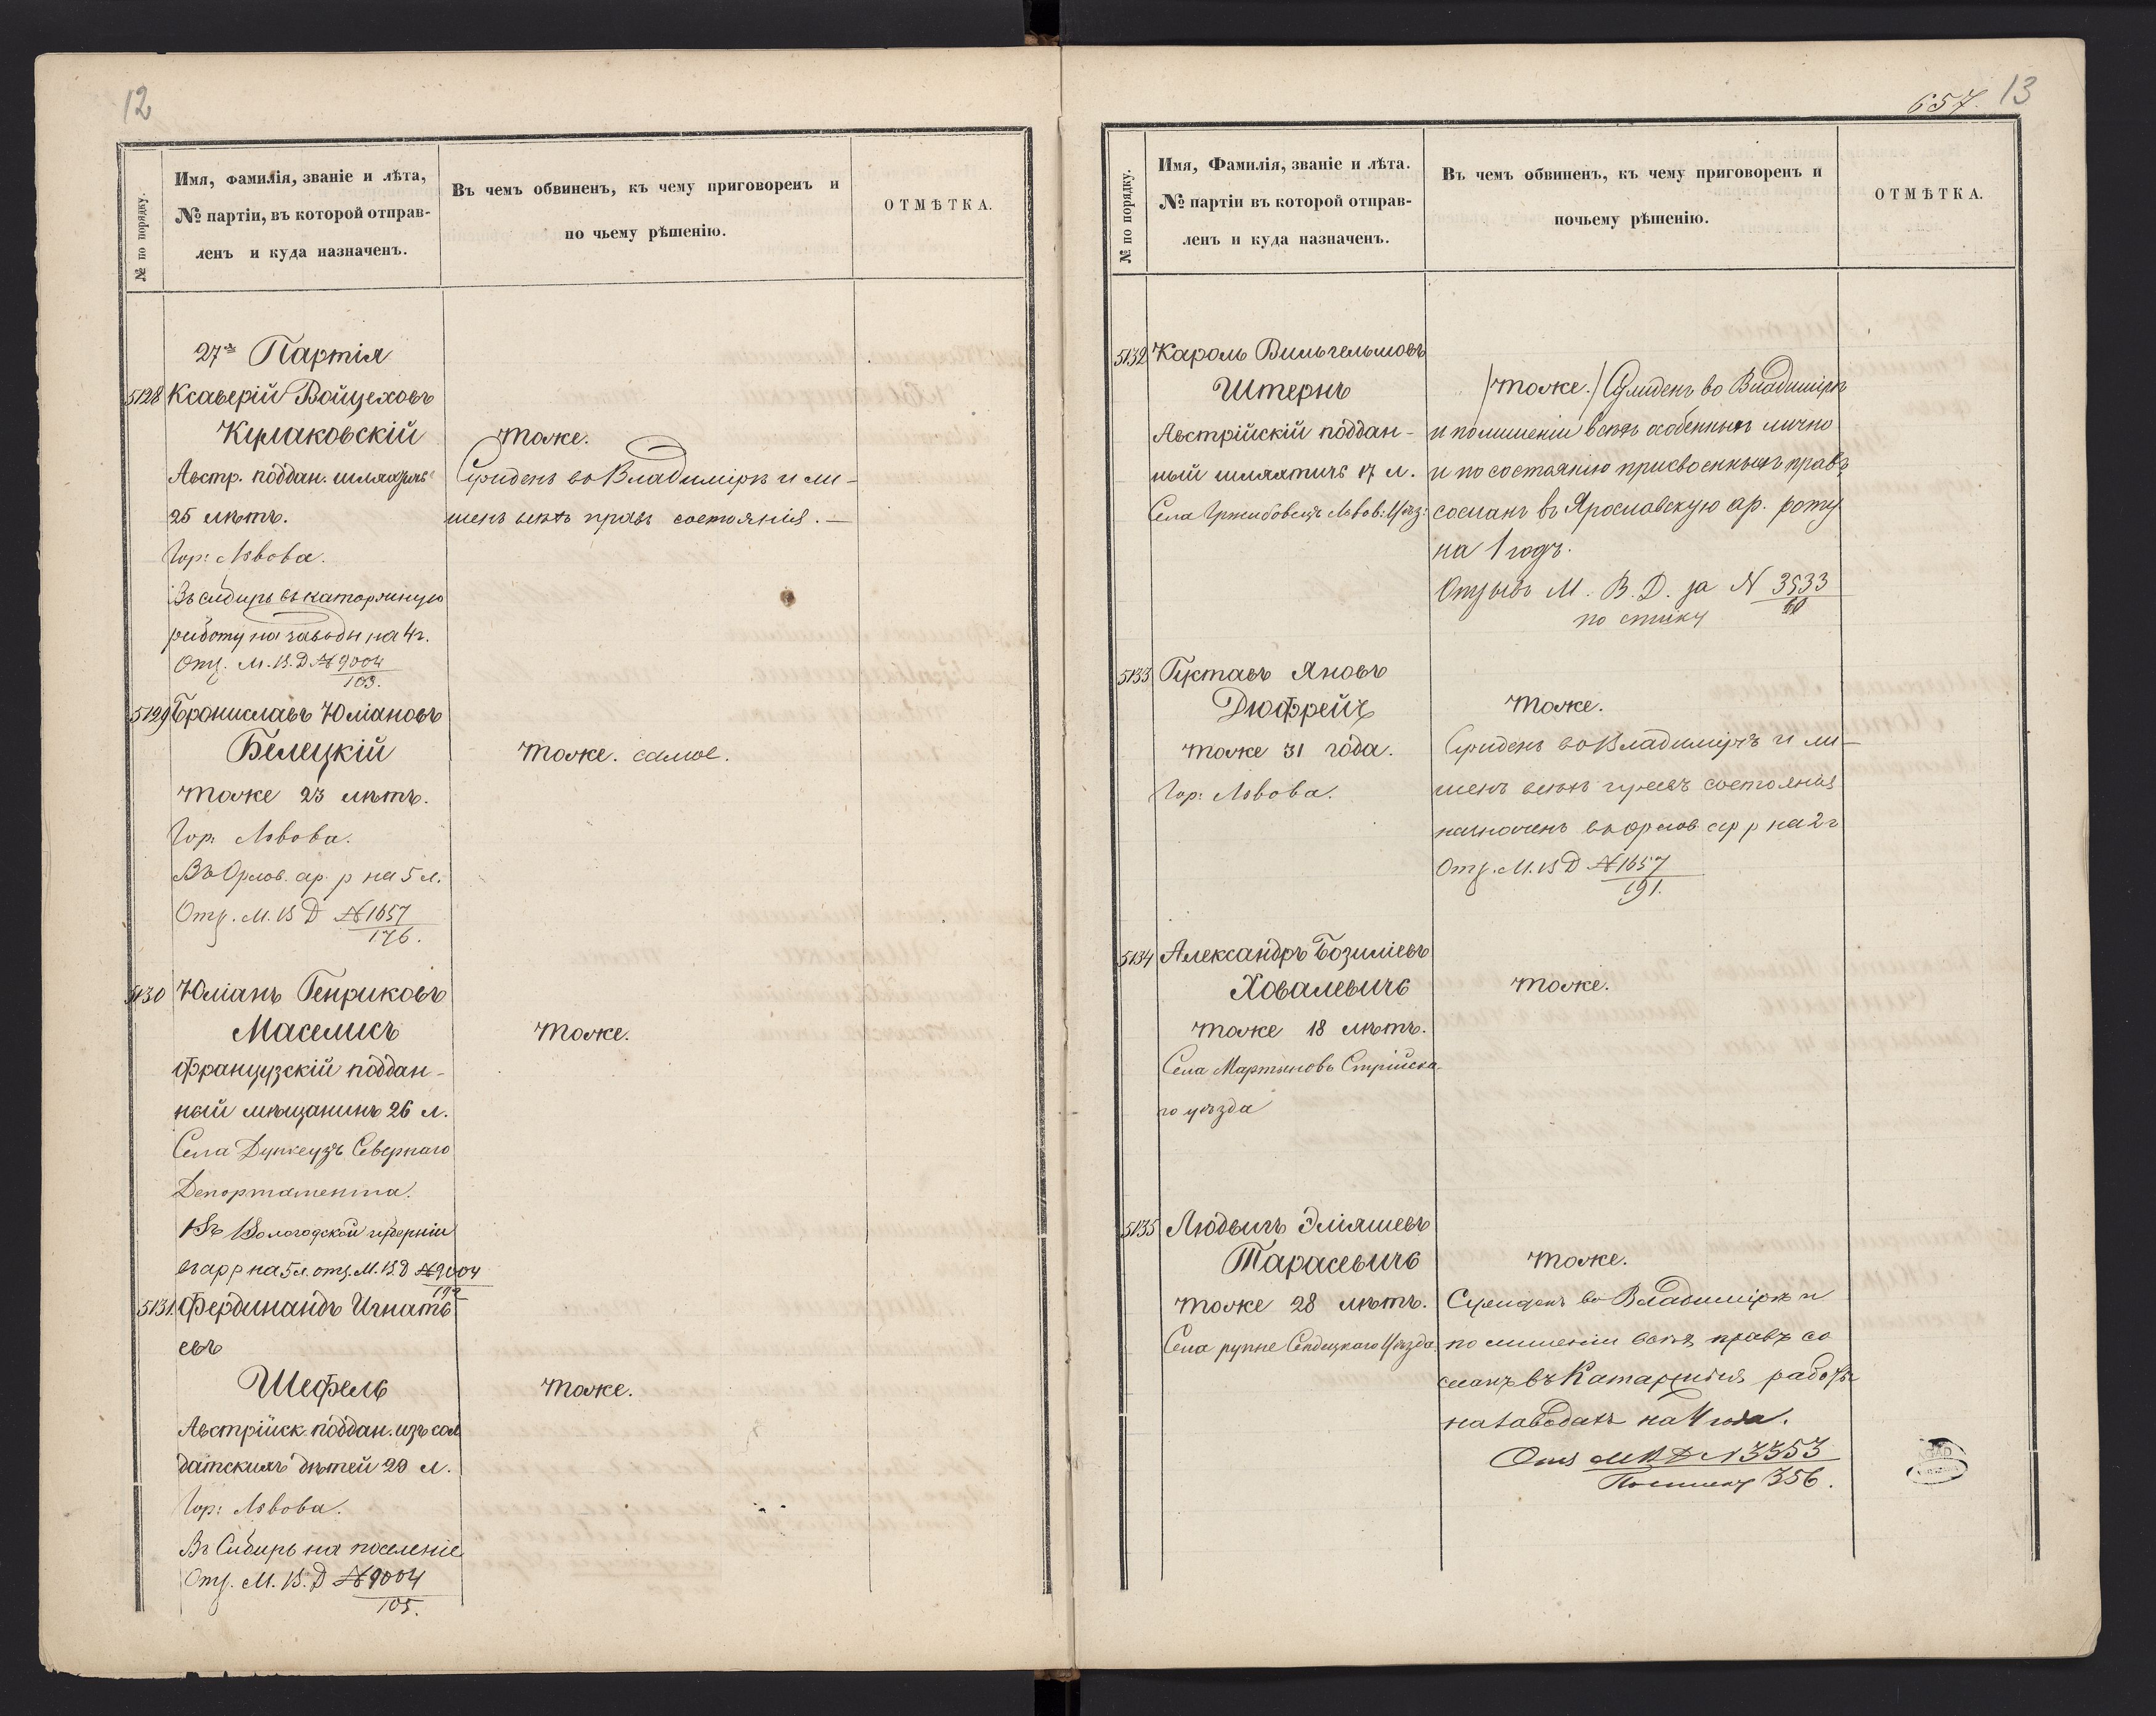 12
№ по порядку.
Имя, Фамилія, званіе и лѣта,
№ партіи, въ которой отправ-
ленъ и куда назначенъ.
Въ чемъ обвиненъ, къ чему приговоренъ и
по чьему рѣшенію.
ОТМѢТКА.
27я Партія
5128 Ксаверій Войцеховъ
Кулаковскій
тоже.
Австр. поддан. шляхтичъ
Сужденъ во Владимірѣ и ли-
25 лѣтъ.
шенъ всѣхъ правъ состоянія.—
Гор: Львова.
Въ Сибирь въ каторжную
работу на заводы на 4 г.
Отз. М.В.Д. № 9004
103.
5129 Брониславъ Юліановъ
Белецкій
тоже самое.
тоже 23 лѣтъ.
Гор: Львова.
Въ Орлов. ар. р на 5 л.
Отз. М.В Д №1657
176.
5130 Юліанъ Генриковъ
Маселисъ
тоже.
Французскій поддан-
ный мѣщанинъ 26 л.
Села Севернаго
Департамента.
Въ Вологодской губерніи
въ ар р на 5 л. отз. М.В.Д №9004
192
5131. Фердинандъ Игнатъ
евъ
Шефель
тоже.
Австрійск. поддан. изъ сол
датскихъ дѣтей 29 л.
Гор: Львова.
Въ Сибирь на поселеніе
Отз. М.В.Д №9004
105.
657. 13
№ по порядку.
Имя, Фамилія, званіе и лѣта.
№ партіи въ которой отправ-
ленъ и куда назначенъ.
Въ чемъ обвиненъ, къ чему приговоренъ и
почьему рѣшенію.
ОТМѢТКА.
5132 Кароль Вильгельмовъ
Штернъ
/тоже./ Сужденъ во Владимірѣ
Австрійскій поддан-
и по лишеніи всѣхъ особенныхъ лично
ный шляхтичъ 17 л.
и по состоянію присвоенныхъ правъ,
Села Львов: Уѣз:
сосланъ въ Ярославскую ар. роту
на 1 годъ.
Отзывъ М. В. Д. за № 3533
60
по списку
5133 Густавъ Яновъ
Дюфрейч
тоже.
тоже 31 года.
Сужденъ во Владимірѣ и ли-
Гор: Львова.
шенъ всѣхъ правъ состоянія
назначенъ въ Орлов ар р на 2 г
Отз. М.В Д №1657
191.
5134 Александръ Бозиліевъ
Ховалевичъ
тоже.
тоже 18 лѣтъ.
Села Мартыновъ Стрійска-
го уѣзда
5135 Людвигъ Эліяшевъ
Тарасевичъ
тоже.
тоже 28 лѣтъ.
Сужденъ во Владимірѣ и
Села Уѣзда.
по лишеніи всѣхъ правъ со
сланъ въ Каторжныя работы
на заводахъ на 4 года.
Отз М В Д №3353
По списку 356.